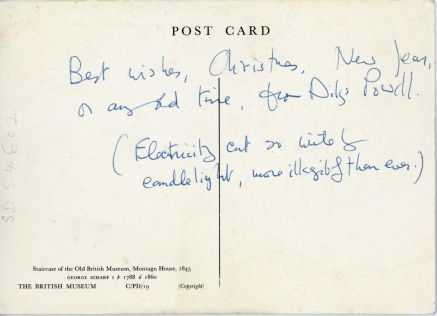 POST CARD
Best wishes, Christmas, New Year,
or any old time, from Dilys Powell.
(Electricity cut so write by
candlelight, more illegibly than ever.)
SD 54602
Staircase of the Old British Museum, Montagu House, 1845
GEORGE SCHARF I b 1788 d 1860
THE BRITISH MUSEUM C/PD/19 (Copyright)